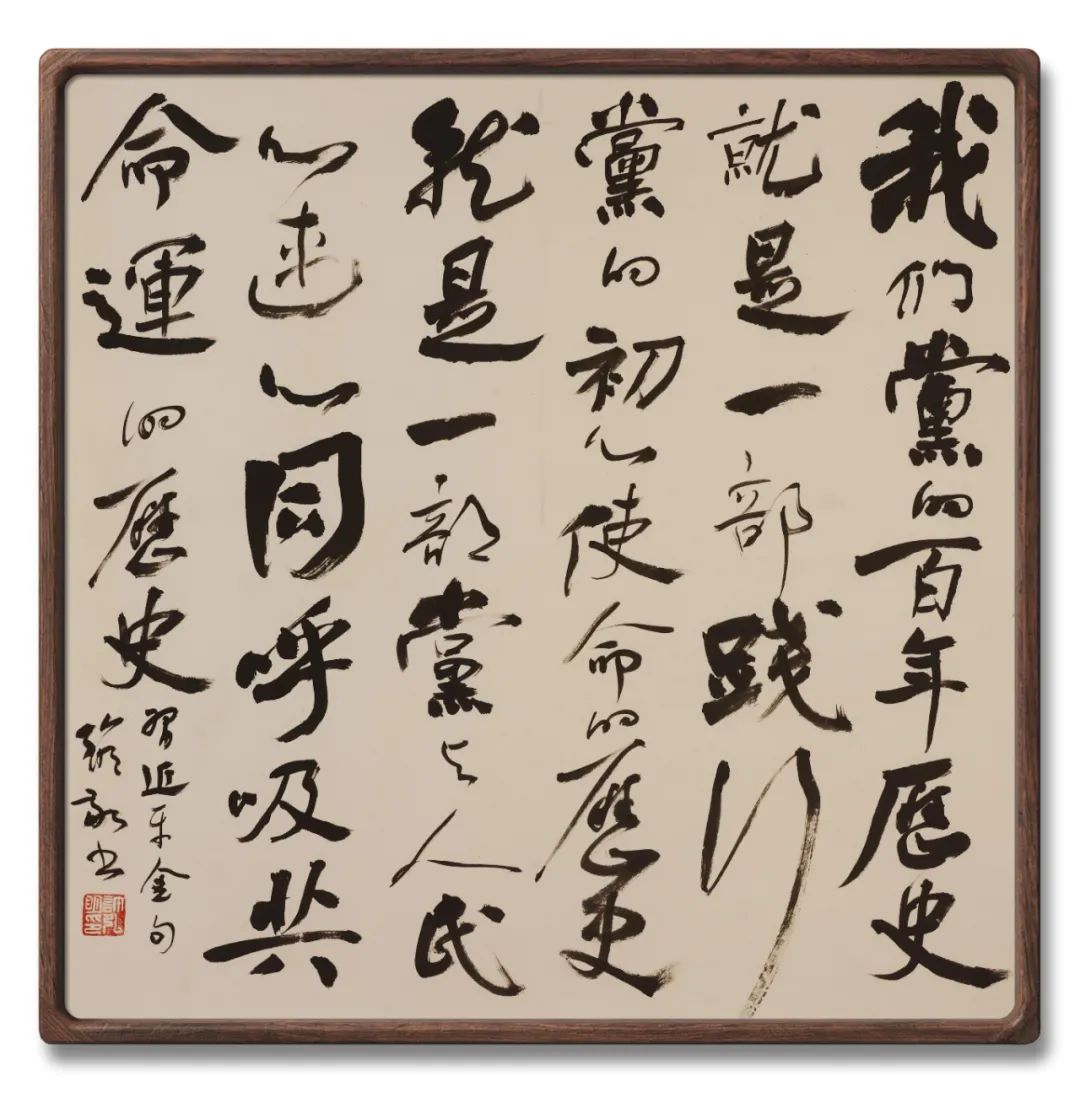 我们黨的百年歷史
就是一部踐行
黨的初心使命的歷史
就是一部黨与人民
心連心同呼吸共
命運的歷史
習近平金句
书